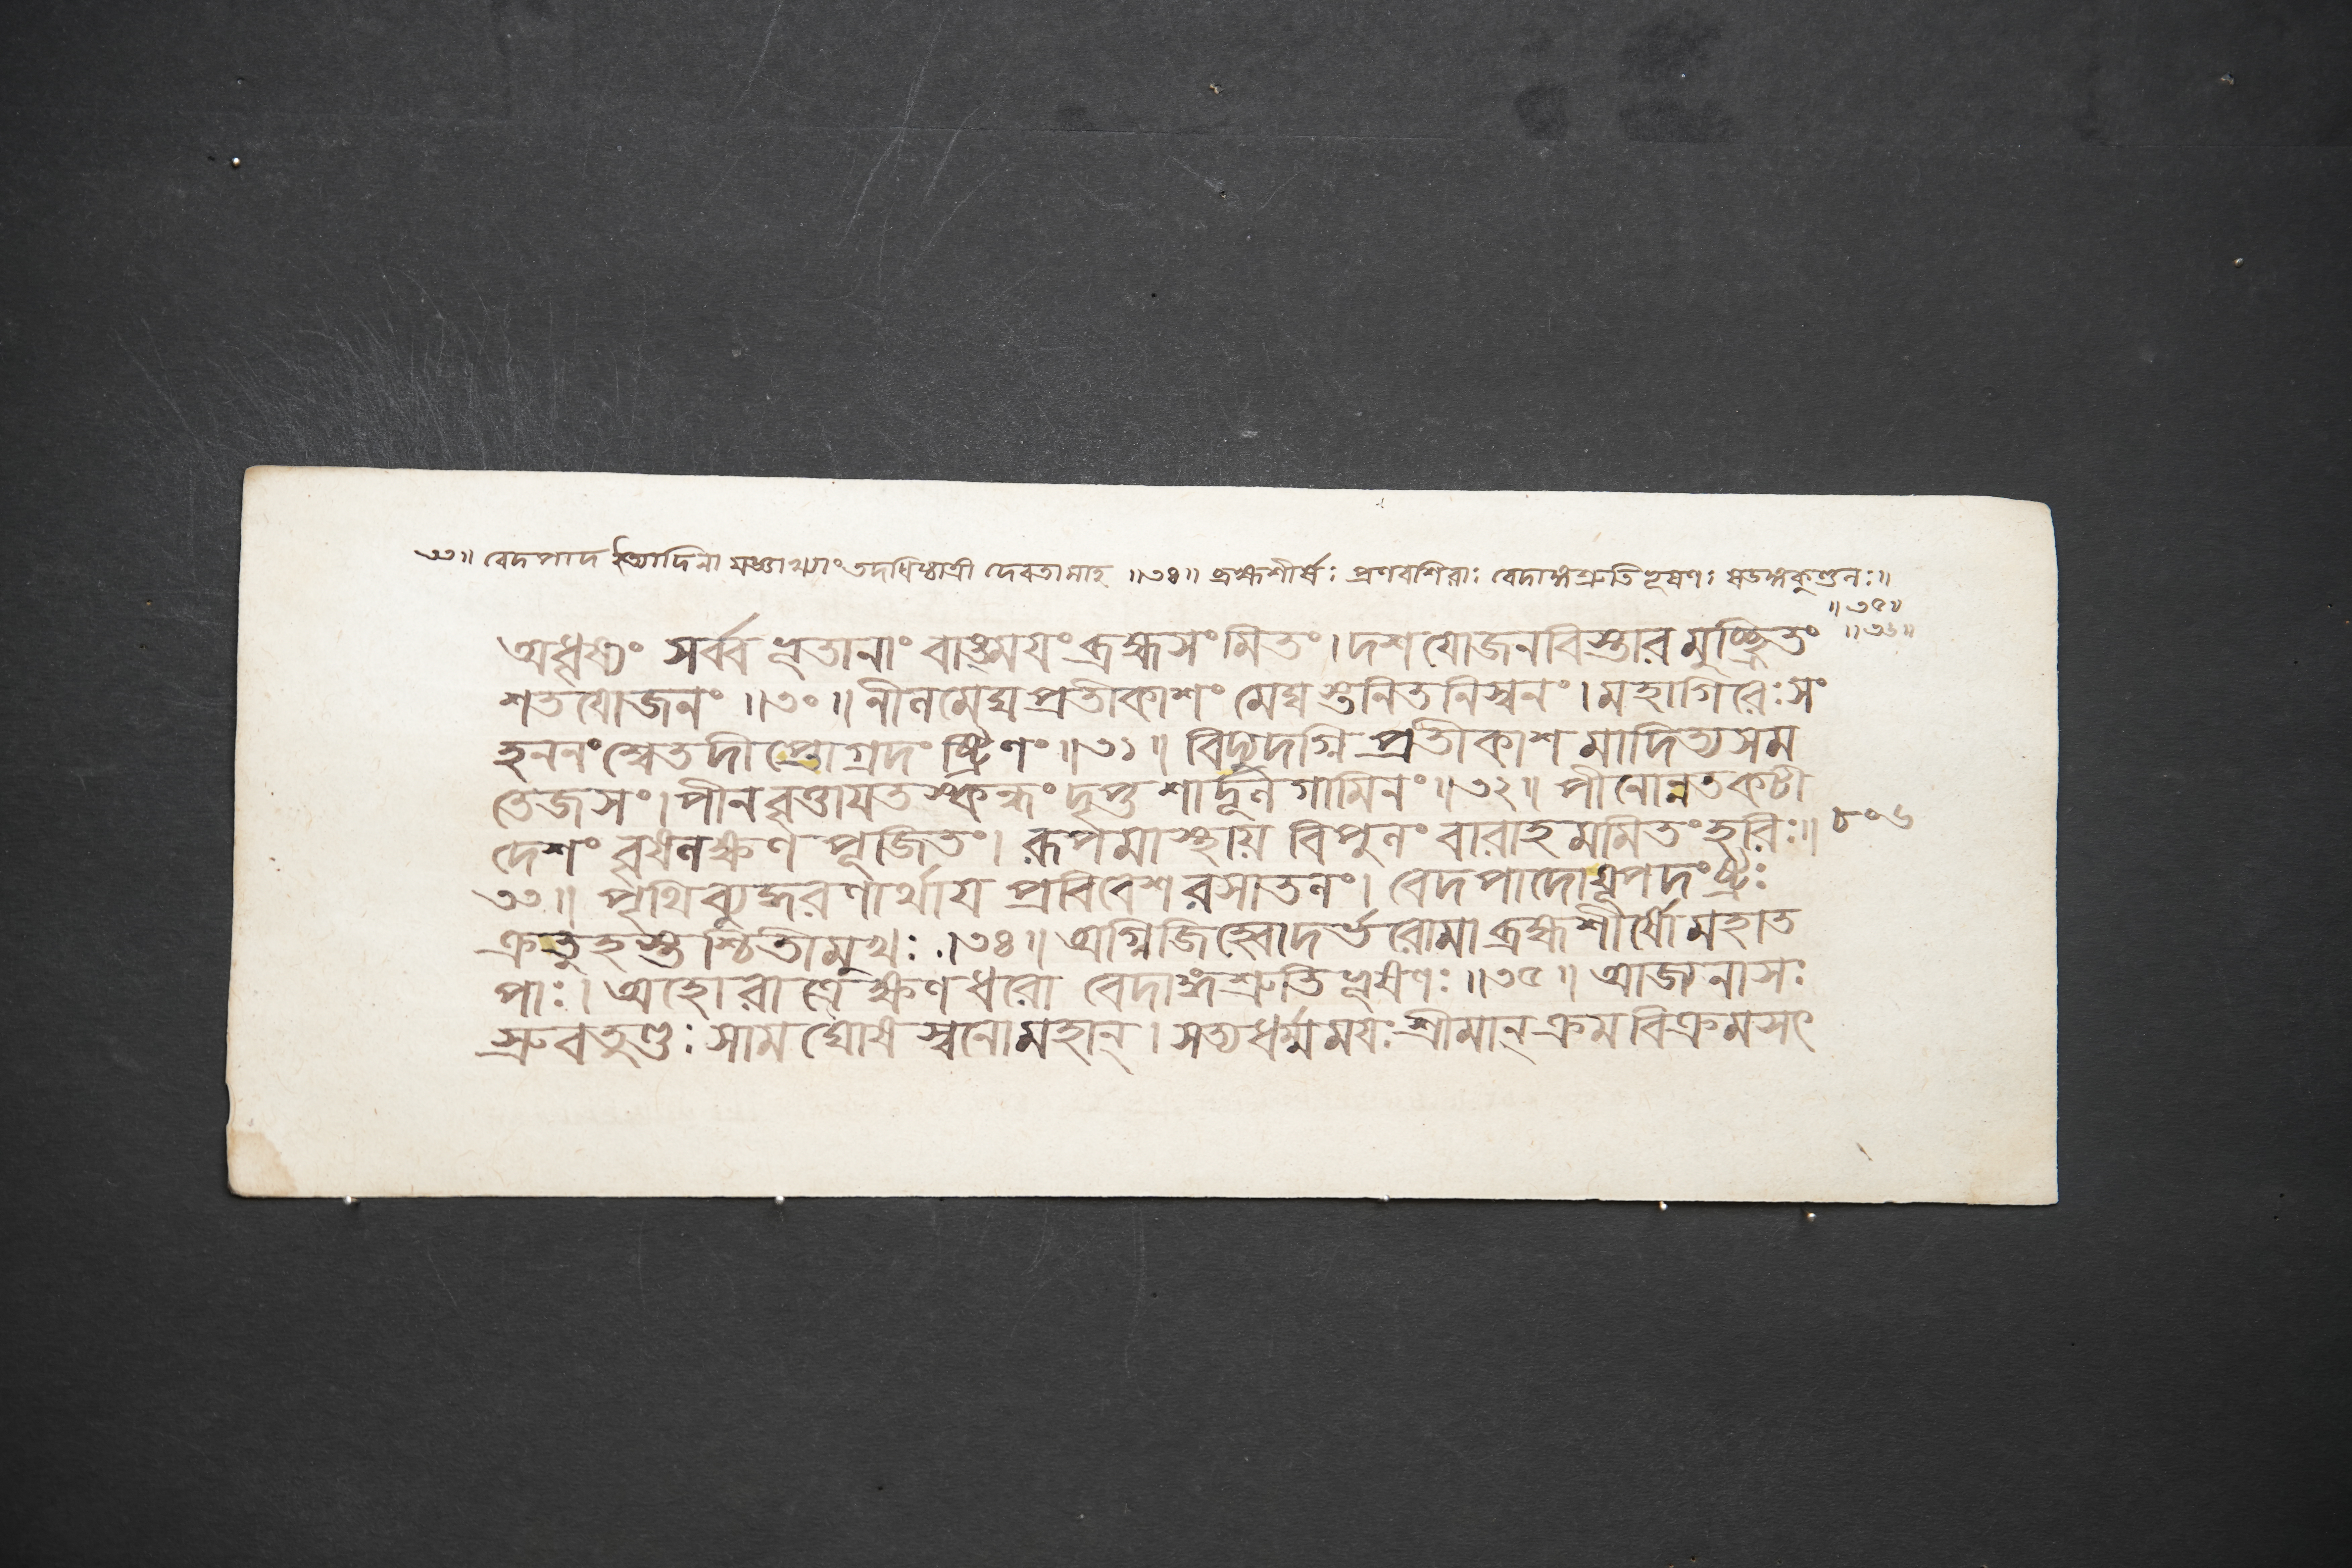 ৩৩॥ বেদপাদ ইত্যাদিনা যজ্ঞাখ্যাং তদধিষ্ঠাত্রী দেবতামাহ ॥৩৪॥ ব্রহ্মশীর্ষঃ প্রণবশিরাঃ বেদাঙ্গশ্রুতিভূষণঃ ষডঙ্গকুণ্ডলঃ॥
॥৩৫॥
॥৩৬॥
অধৃষ্যং সর্ব্বভূতানাং বাঙ্ময়ং ব্রহ্মসংমিতং। দশযোজনবিস্তারমুচ্ছ্রিতং
শতযোজনং ॥৩০॥ নীলমেঘপ্রতীকাশং মেঘস্তনিতনিস্বনং। মহাগিরেঃ সং
হননং শ্বেতদীপ্তোগ্রদংষ্ট্রিণং॥৩১॥ বিদ্যুদগ্নিপ্রতীকাশমাদিত্যসম
তেজসং। পীনবৃত্তায়তস্কন্ধং দৃপ্তশার্দূলগামিনং॥৩২॥ পীনোন্নতকটী
দেশং বৃষলক্ষণপূজিতং। রূপমাস্থায় বিপুলং বারাহমমিতং হরিঃ॥
৮০৬
৩৩॥ পৃথিব্যুদ্ধরণার্থায় প্রবিবেশ রসাতলং। বেদপাদো যূপদংষ্ট্রঃ
ক্রতুহস্তশ্চিতীমুখঃ ॥৩৪॥ অগ্নিজিহ্বো দর্ভরোমা ব্রহ্মশীর্ষো মহাত
পাঃ। অহোরাত্রেক্ষণধরো বেদাঙ্গশ্রুতিভূষণঃ ॥৩৫॥ আজ্যনাসঃ
স্রুবতুণ্ডঃ সামঘোষস্বনো মহান্। সত্যধর্ম্মময়ঃ শ্রীমান্ ক্রমবিক্রমসৎ